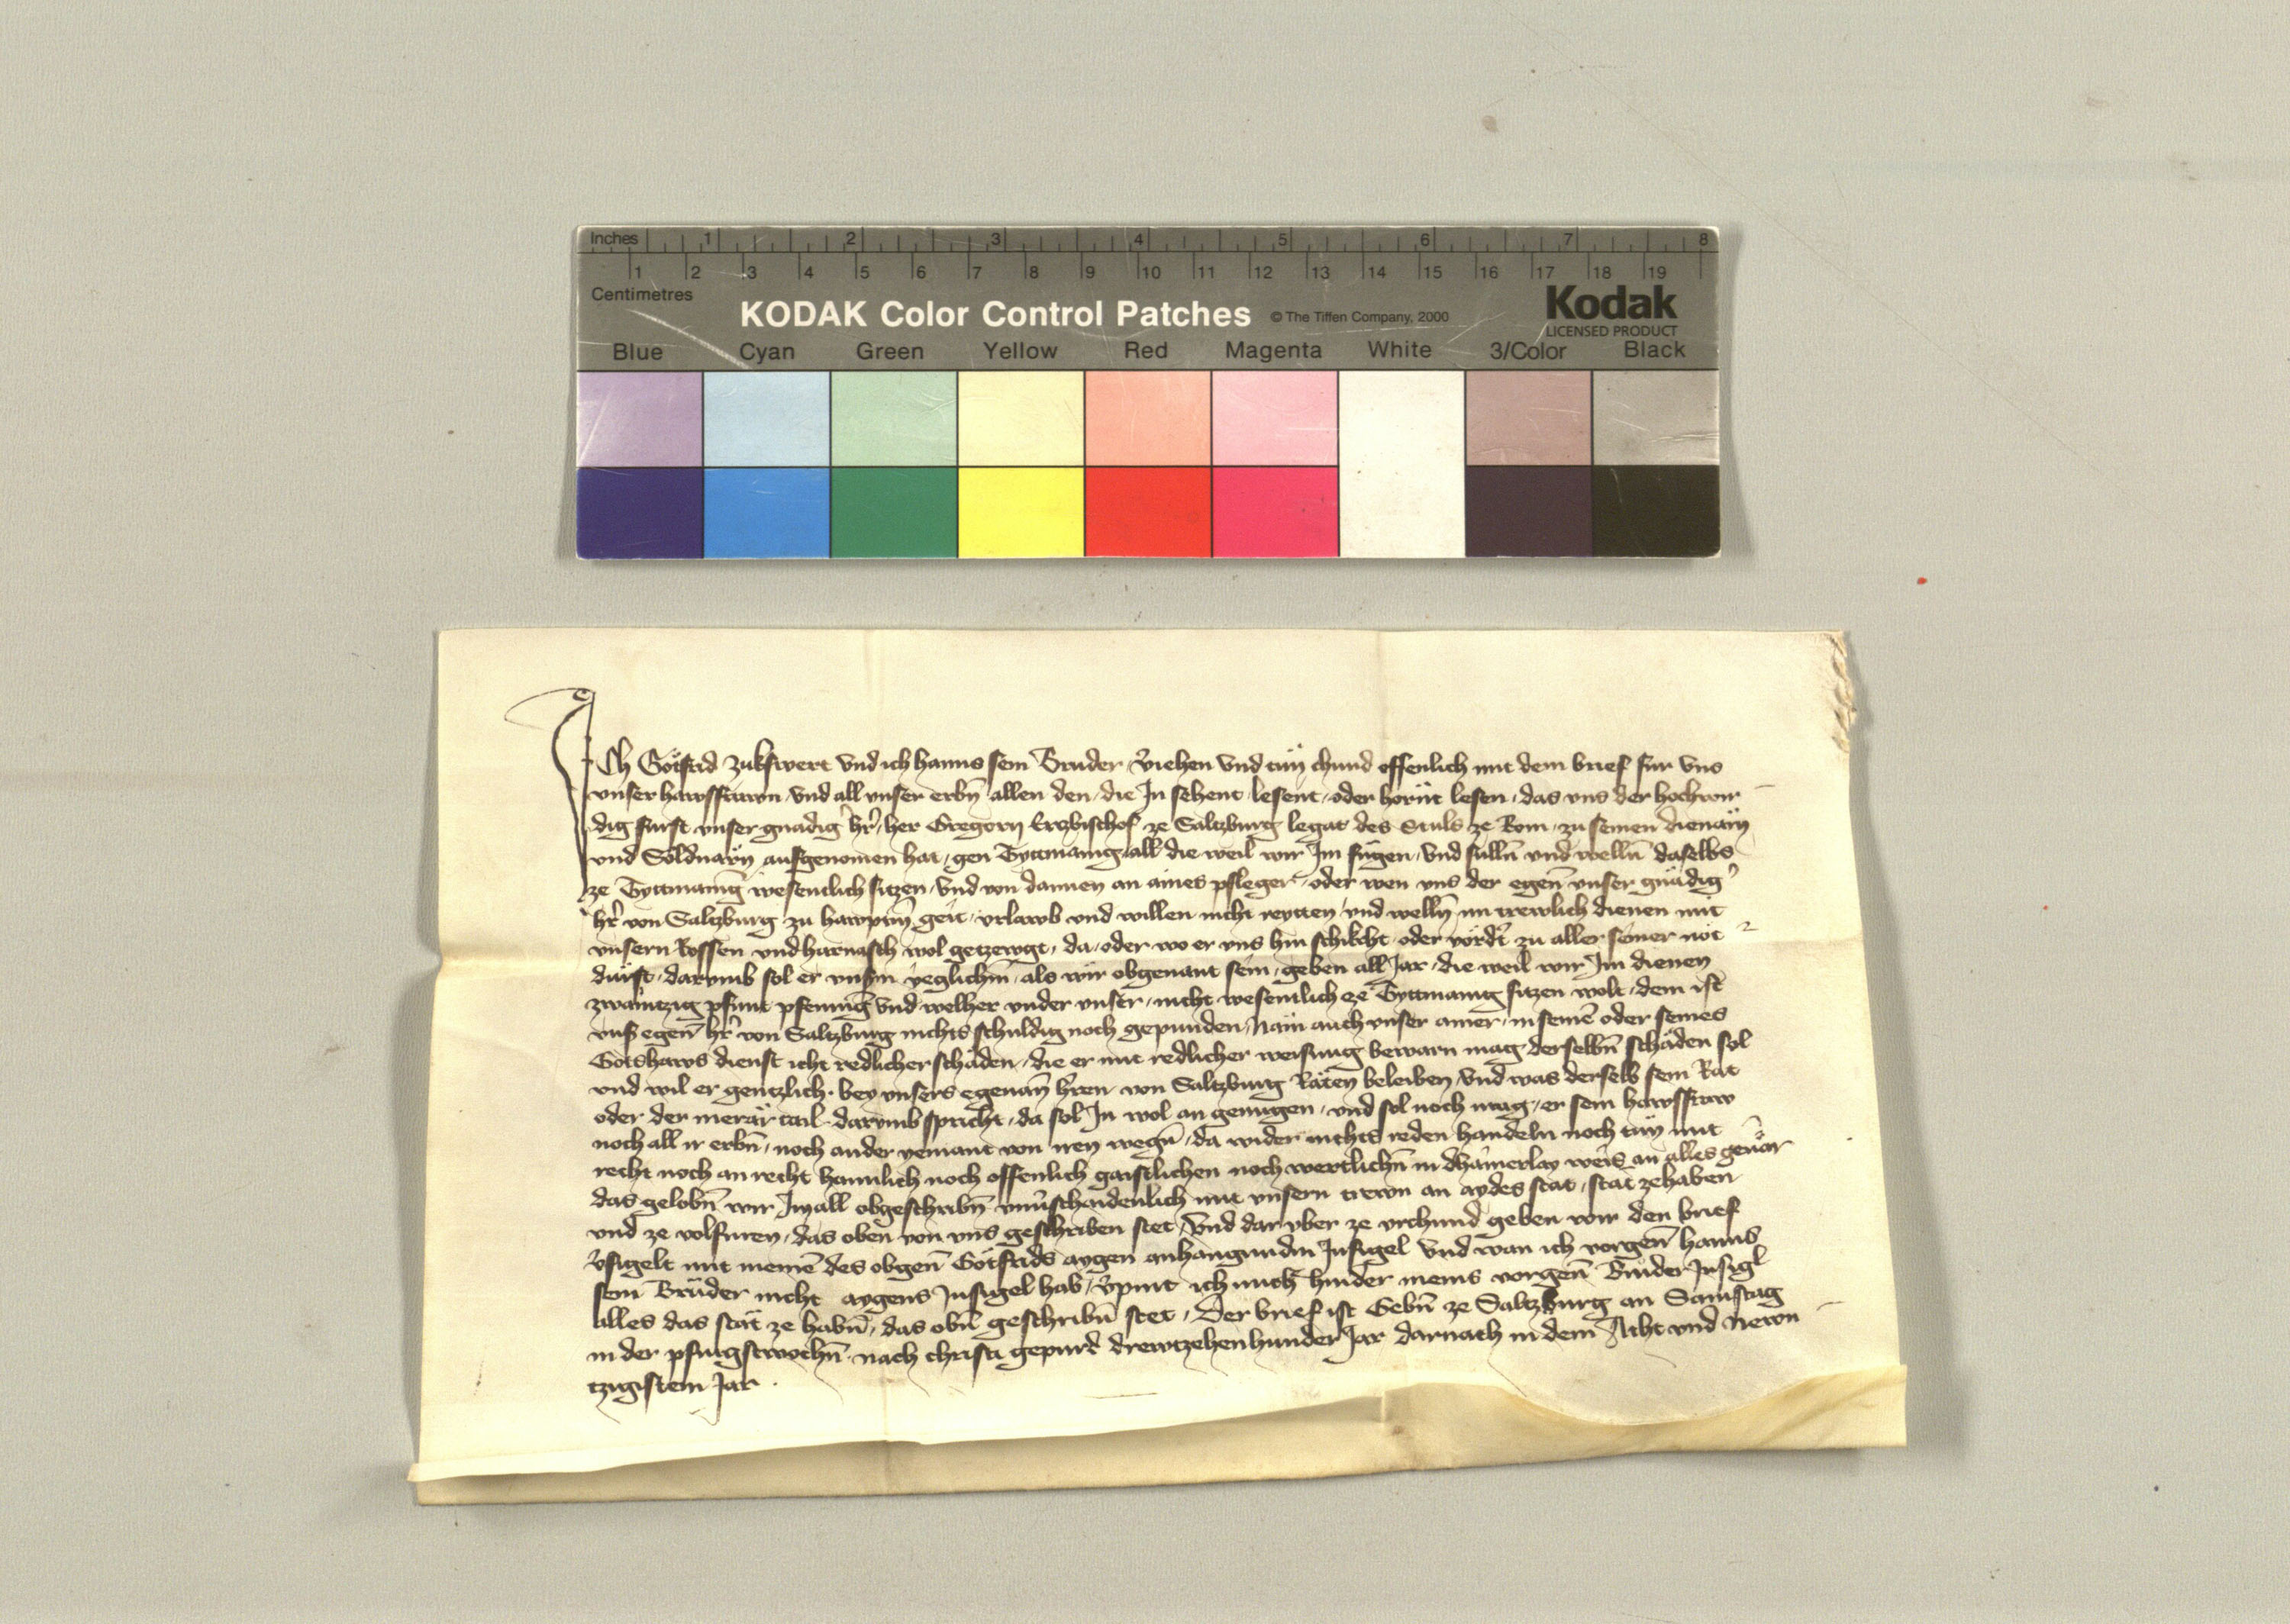 Inches 1 2 3 4 5 6 7 8
1 2 3 4 5 6 7 8 9 10 11 12 13 14 15 16 17 18 19
Centimetres
KODAK Color Control Patches © The Tiffen Company, 2000 Kodak
LICENSED PRODUCT
Blue Cyan Green Yellow Red Magenta White 3/Color Black
Ich Götfrid Zukswert vnd ich Hanns sein Bruder v̓iehen vnd tün chund offenlich mit dem brief für vns
vnser hawsfrawn, vnd all vnser erbn̄ allen den, die In sehent, lesent, oder hörnt lesen, das vns der hochwir
dig fürst vnser gnädig̓ hr̓, her Gregory Erczbischof ze Salczburg legat des Stuls ze Rom, zu seinen dienärn
vnd Söldnärn aufgenomen hat, gen Tyttmanig, all die weil wir Im fügen, vnd sulln̄ vnd welln̄ daselbs
ze Tyttmanig wesentlich siczen, vnd von dannen an aines pfleger, oder wen vns der egen̄ vnser gnädig̓
hr̓ von Salczburg zu hawptm̄ geit, vrlawb vnd willen nicht reytten, vnd welln̄ im trewlich dienen mit
vnsern Rossen vnd harnasch wol getzewgt, da, oder wo er vns hin schikcht, oder vördt̓ zu aller seiner not
dürft, darumb sol er vns̓m yeglichm̄, als wir obgenant sein, geben all Jar, die weil wir Im dienen
zwaintzig pfunt pfenniḡ vnd welher vnder vnser, nicht wesentlich ze Tyttmanig siczen wolt, dem ist
vns̓ egen̄ hr̓ von Salczburg nichts schuldig noch gepunden, Näm auch vnser ainer, in seinē oder seines
Gotshaws dienst icht redlicher schäden, die er mit redlicher weisung bewarn mag, derselbn̄ schäden sol
vnd wil er gentzlich, bey vnsers egenan̄ h̓ren von Salczburg Räten beleiben, vnd was derselb sein Rat
oder der merär tail darumb spricht, da sol In wol an genugen, vnd sol noch mag, er sein hawsfraw
noch all ir erbn̄, noch ander yemant von iren wegn̄, da wider nichts reden handeln noch tün mit
recht noch an recht haimlich noch offenlich gaistlichen noch werltlichn̄ in dhainerlay weis an alles geuär
das gelobn̄ wir Im all obgeschribn̄ vnu̓schaidenlich mit vnsern trewn an aydes stat, stät ze haben
vnd ze volfüren, das oben von vns geschriben stet, Vnd daruber ze vrchund geben wir den brief
v̓sigelt mit meinē des obgen̄ Götfrids aygen anhangundm Insigel vnd wan ich vorgen̄ Hanns
sein Brüder nicht aygens Insigel hab, v̓pint ich mich hinder meins vorgen̄ Brüder Insigl
alles das stät ze habn̄, das obn̄ geschribn̄ stet, Der brief ist Gebn̄ ze Saltzburg an Samstag
in der pfingstwochn̄ nach christi gepurd drewtzehenhunder Jar darnach in dem Acht vnd Newn
tzigistem Jar.